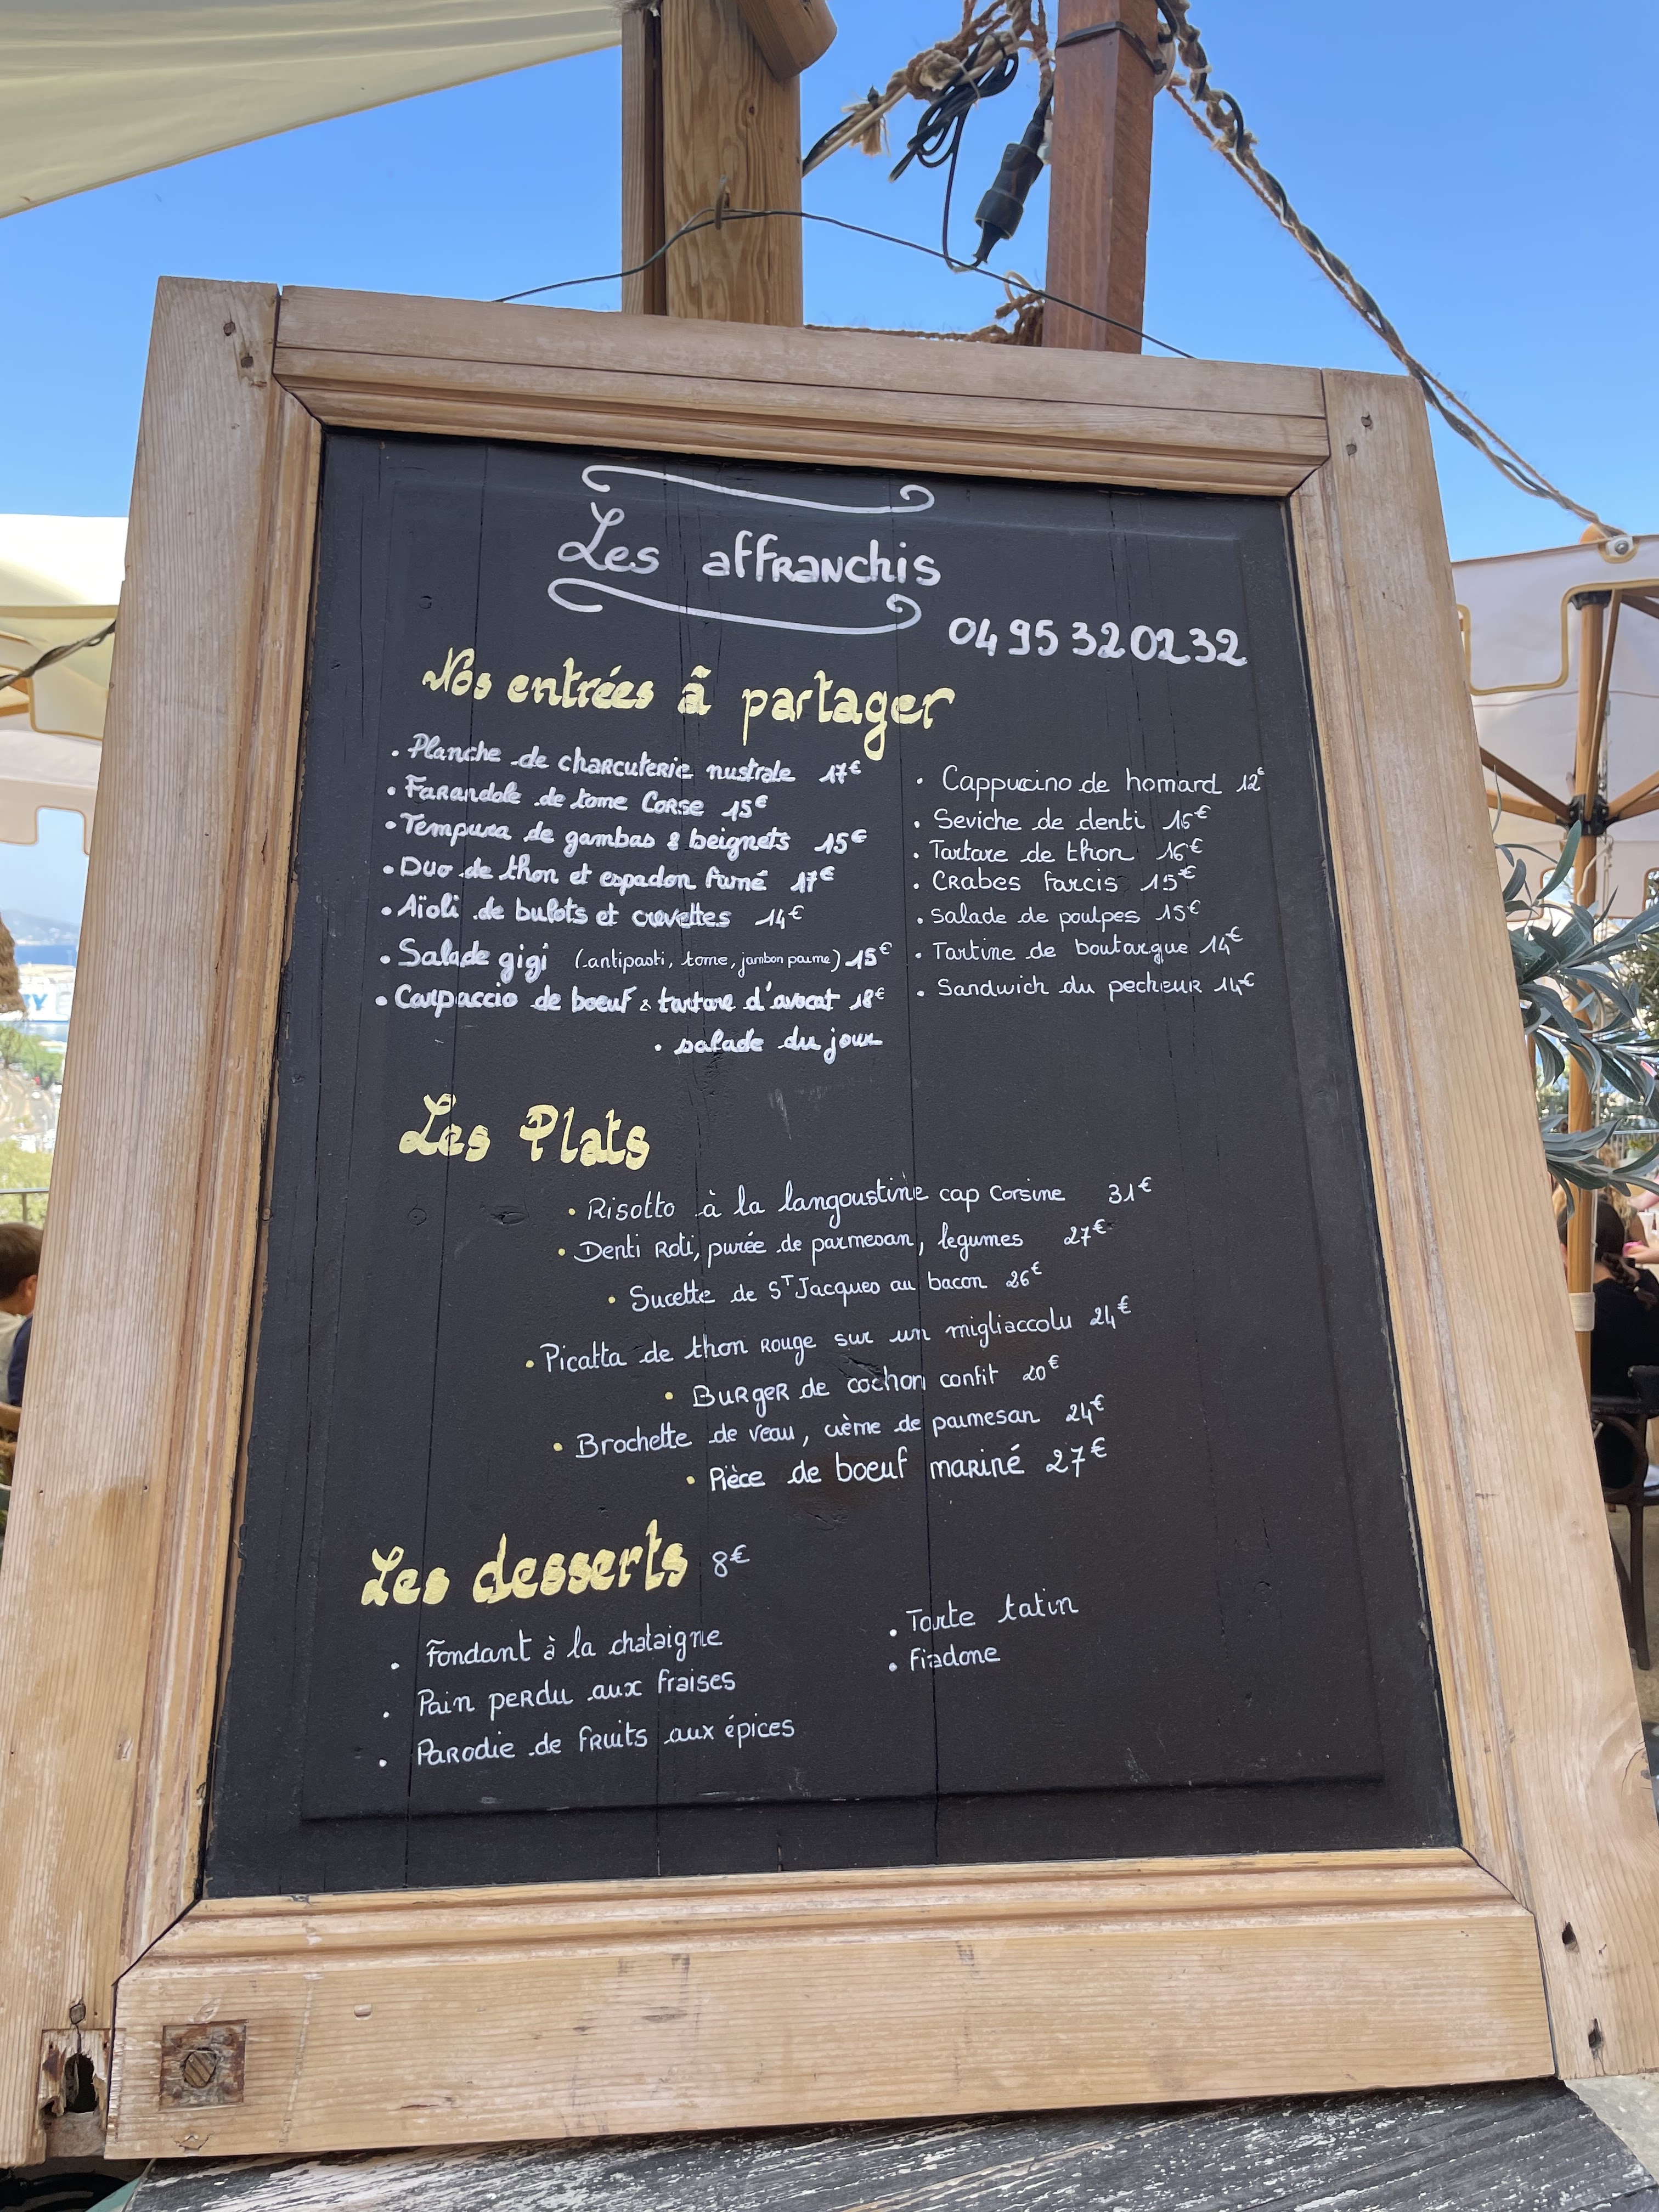 Les affranchis
04 95 32 02 32
Nos entrées à partager
• Planche de charcuterie nustrale 17€
• Farandole de tome Corse 15€
• Tempura de gambas & beignets 15€
• Duo de thon et espadon fumé 17€
• Aïoli de bulots et crevettes 14€
• Salade gigi (antipasti, tome, jambon parme) 15€
• Carpaccio de boeuf & tartare d'avocat 18€
• Cappuccino de homard 12€
• Seviche de denti 16€
• Tartare de thon 16€
• Crabes farcis 15€
• Salade de poulpes 15€
• Tartine de boutargue 14€
• Sandwich du pecheur 14€
• salade du jour
Les Plats
• Risotto à la langoustine cap Corsine 31€
• Denti Roti, purée de parmesan, legumes 27€
• Sucette de ST Jacques au bacon 26€
• Picatta de thon Rouge sur un migliaccolu 24€
• Burger de cochon confit 20€
• Brochette de veau, crème de parmesan 24€
• Pièce de boeuf mariné 27€
Les desserts 8€
• Fondant à la chataigne
• Pain perdu aux fraises
• Parodie de fruits aux épices
• Tarte tatin
• Fiadone